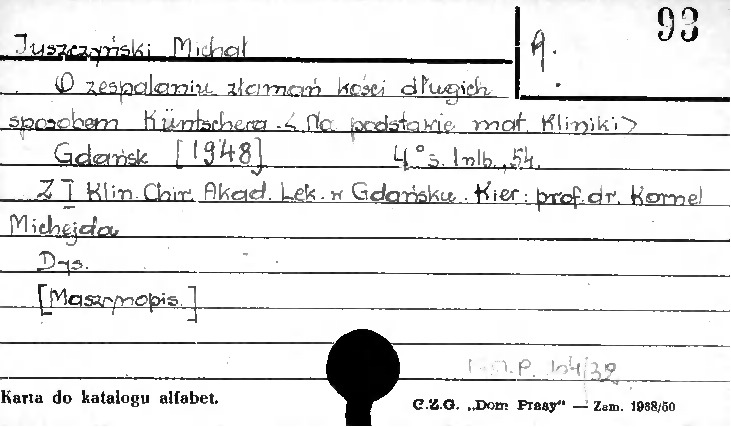 93
A.
Juszczyński Michał
O zespalaniu złamań kości długich
sposobem Küntschera. <Na podstawie mat. Kliniki>
Gdańsk [1948] 4° s. 1 nlb., 54.
Z I Klin. Chir. Akad. Lek. w Gdańsku. Kier: prof. dr. Kornel
Michejda
Dys.
[Maszynopis.]
P. 104/32
Karta do katalogu alfabet.
C.Z.G. „Dom Prasy" — Zam. 1968/50